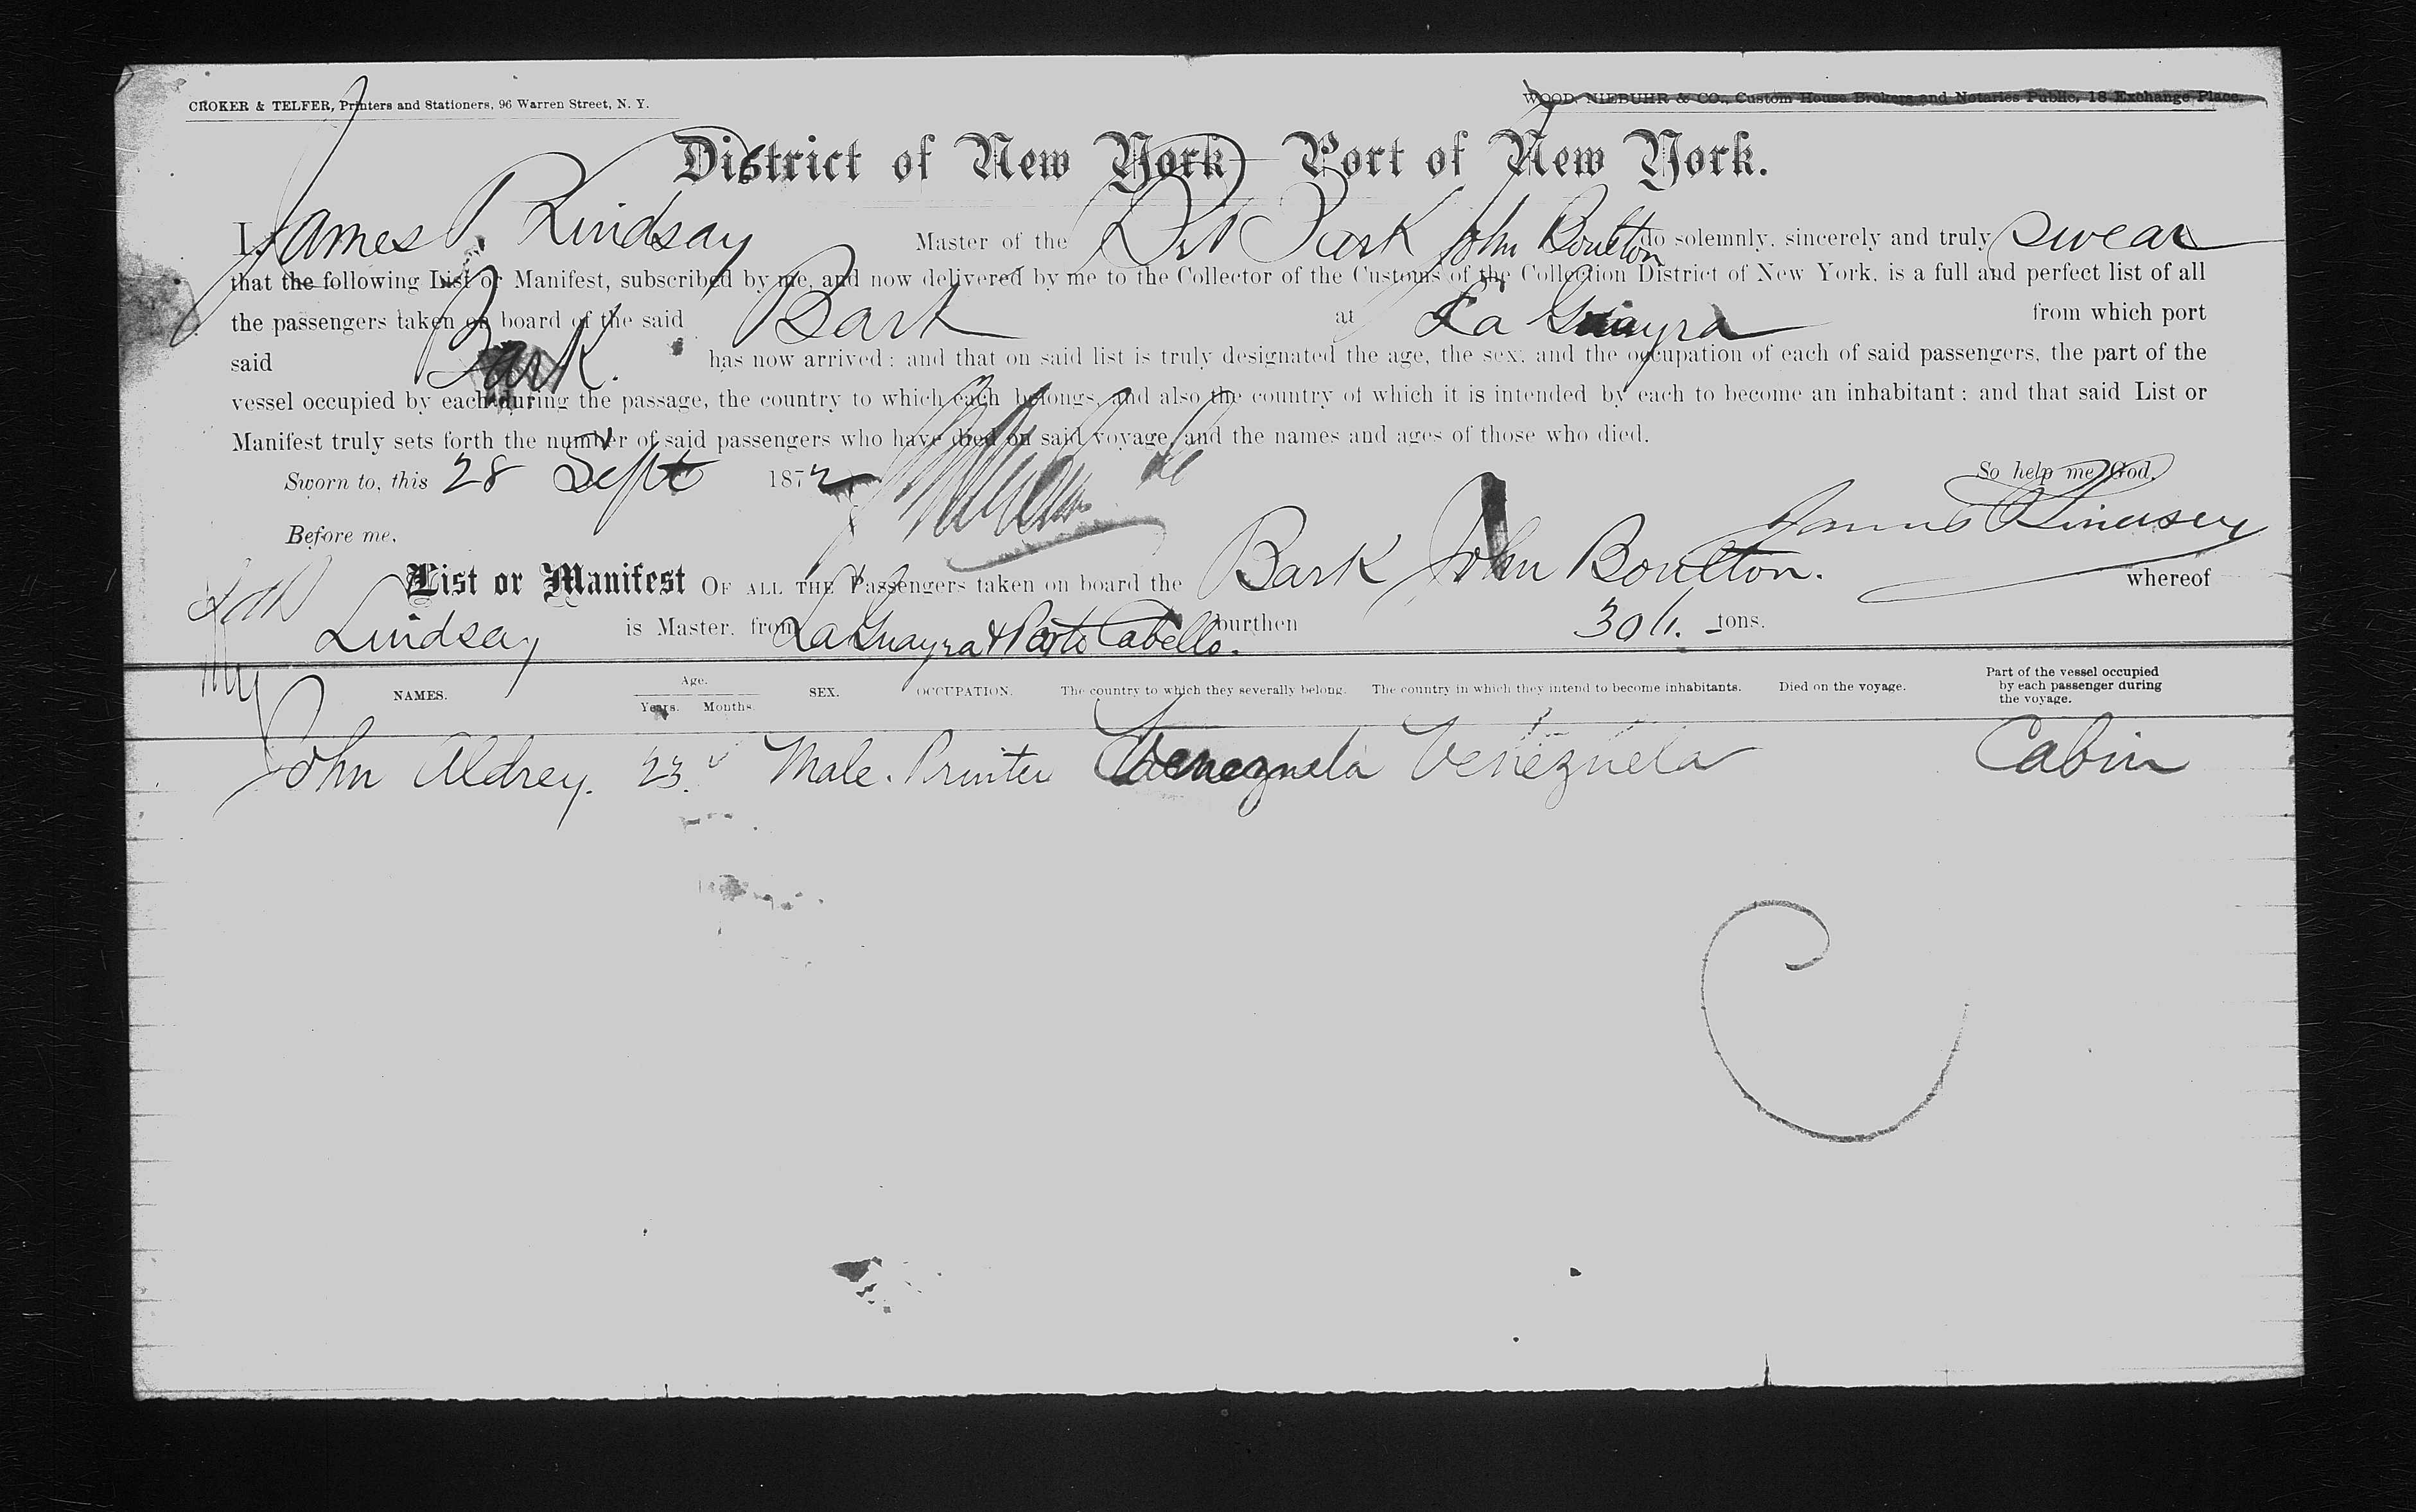 CROKER & TELFER, Printers and Stationers, 96 Warren Street, N. Y.
WOOD, NIEBUHR & CO., Custom House Brokers and Notaries Public, 18 Exchange Place.
District of New York Port of New York.
I, James P. Lindsay Master of the Brit Bark John Boulton do solemnly, sincerely and truly swear
that the following List or Manifest, subscribed by me, and now delivered by me to the Collector of the Customs of the Collection District of New York, is a full and perfect list of all
the passengers taken on board of the said Bark at La Guayra from which port
said Bark. has now arrived; and that on said list is truly designated the age, the sex, and the occupation of each of said passengers, the part of the
vessel occupied by each during the passage, the country to which each belongs, and also the country of which it is intended by each to become an inhabitant; and that said List or
Manifest truly sets forth the number of said passengers who have died on said voyage, and the names and ages of those who died.
Sworn to, this 28 Sept 1872 So help me God.
Before me, James P Lindsay
List or Manifest OF ALL THE Passengers taken on board the Bark John Boulton. whereof
Lindsay is Master, from La Guayra & Porto Cabello. bourthen tons.
NAMES. Age. Years. Months. SEX. OCCUPATION. The country to which they severally belong. The country in which they intend to become inhabitants. Died on the voyage. Part of the vessel occupied by each passenger during the voyage.
John Aldrey. 23. Male. Printer Venezuela Venezuela Cabin